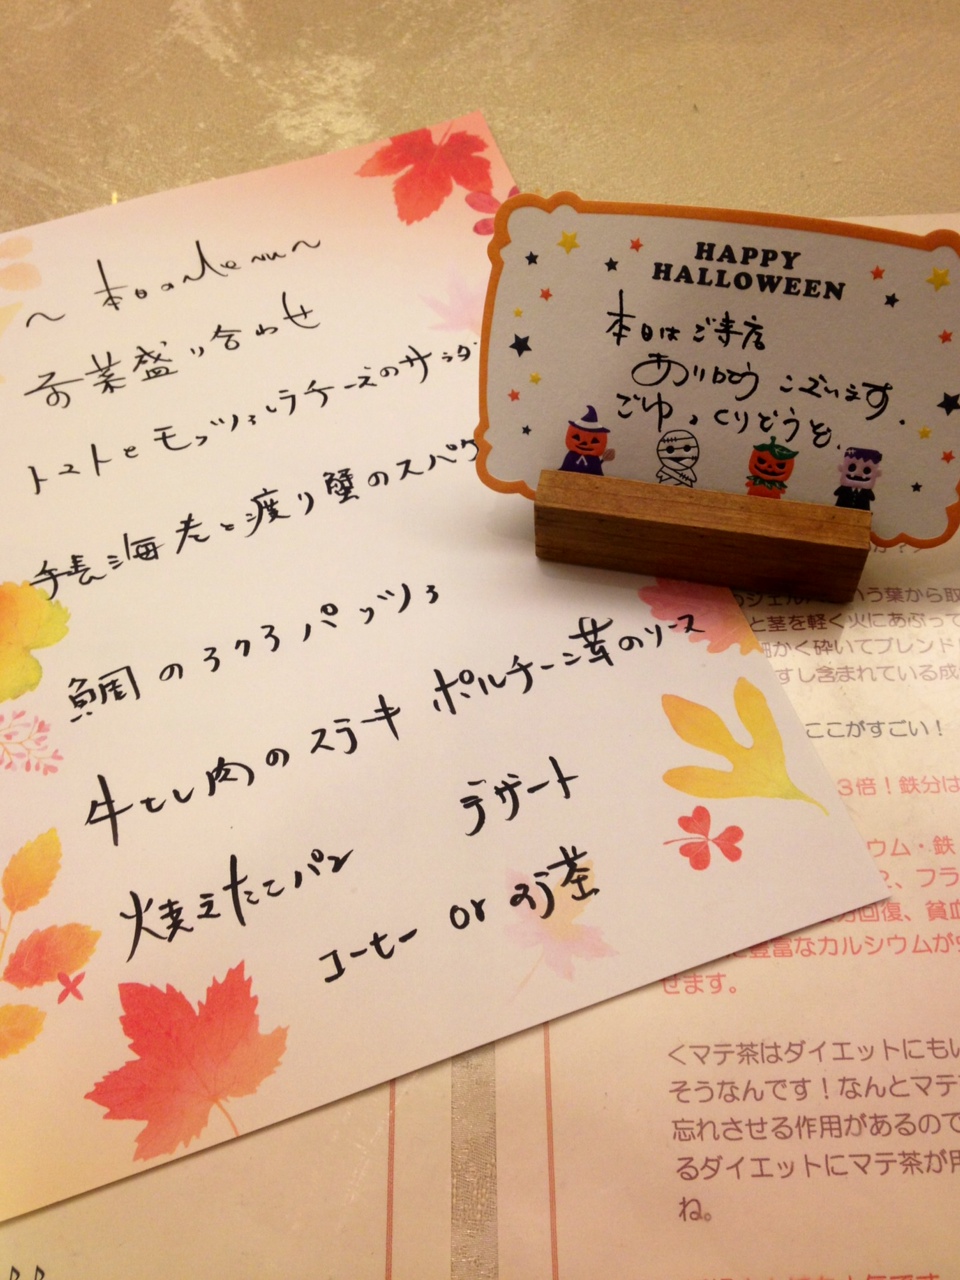 〜本日のMenu〜
前菜盛り合わせ
トマトとモッツァレラチーズのサラダ
手長海老と渡り蟹のスパゲ
鯛のアクアパッツァ
牛もも肉のステーキ ポルチーニ茸のソース
焼きたてパン
デザート
コーヒー or お茶
HAPPY
HALLOWEEN
本日はご来店
ありがとうございます。
ごゆっくりどうぞ。
いう葉から取
と茎を軽く火にあぶって
細かく砕いてブレンド
すし含まれている成
ここがすごい！
3倍！鉄分は
ウム・鉄
2、フラ
回復、貧血
豊富なカルシウムが
せます。
＜マテ茶はダイエットにもい
そうなんです！なんとマテ
忘れさせる作用があるので
るダイエットにマテ茶が用
ね。